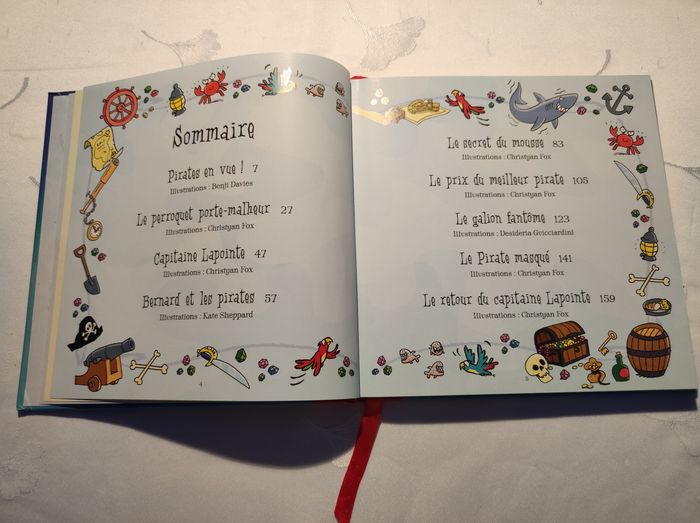 Sommaire
Pirates en vue ! 7
Illustrations : Benji Davies
Le perroquet porte-malheur 27
Illustrations : Christyan Fox
Capitaine Lapointe 47
Illustrations : Christyan Fox
Bernard et les pirates 57
Illustrations : Kate Sheppard
4
Le secret du mousse 83
Illustrations : Christyan Fox
Le prix du meilleur pirate 105
Illustrations : Christyan Fox
Le galion fantôme 123
Illustrations : Desideria Guicciardini
Le Pirate masqué 141
Illustrations : Christyan Fox
Le retour du capitaine Lapointe 159
Illustrations : Christyan Fox
5